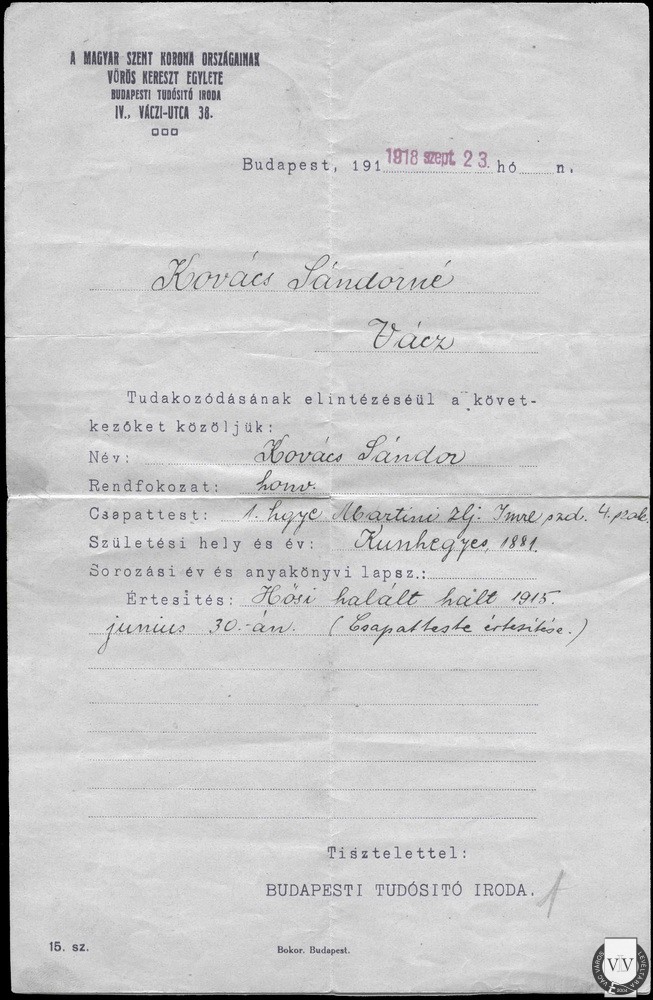 A MAGYAR SZENT KORONA ORSZÁGAINAK
VÖRÖS KERESZT EGYLETE
BUDAPESTI TUDÓSITÓ IRODA
IV., VÁCZI-UTCA 38.
Budapest, 191 1918 szept. 23. hó n.
Kovács Sándorné
Vácz
Tudakozódásának elintézéséül a követ-
kezőket közöljük:
Név: Kovács Sándor
Rendfokozat: honv.
Csapattest: 1. hgye Martini zlj. Imre szd. 4. szak.
Születési hely és év: Kunhegyes, 1881.
Sorozási év és anyakönyvi lapsz.:
Értesités: Hősi halált halt 1915.
junius 30.-án. (Csapatteste értesitése.)
Tisztelettel:
BUDAPESTI TUDÓSITÓ IRODA.
15. sz.
Bokor. Budapest.
VÁC VÁROS LEVÉLTÁRA
VVL